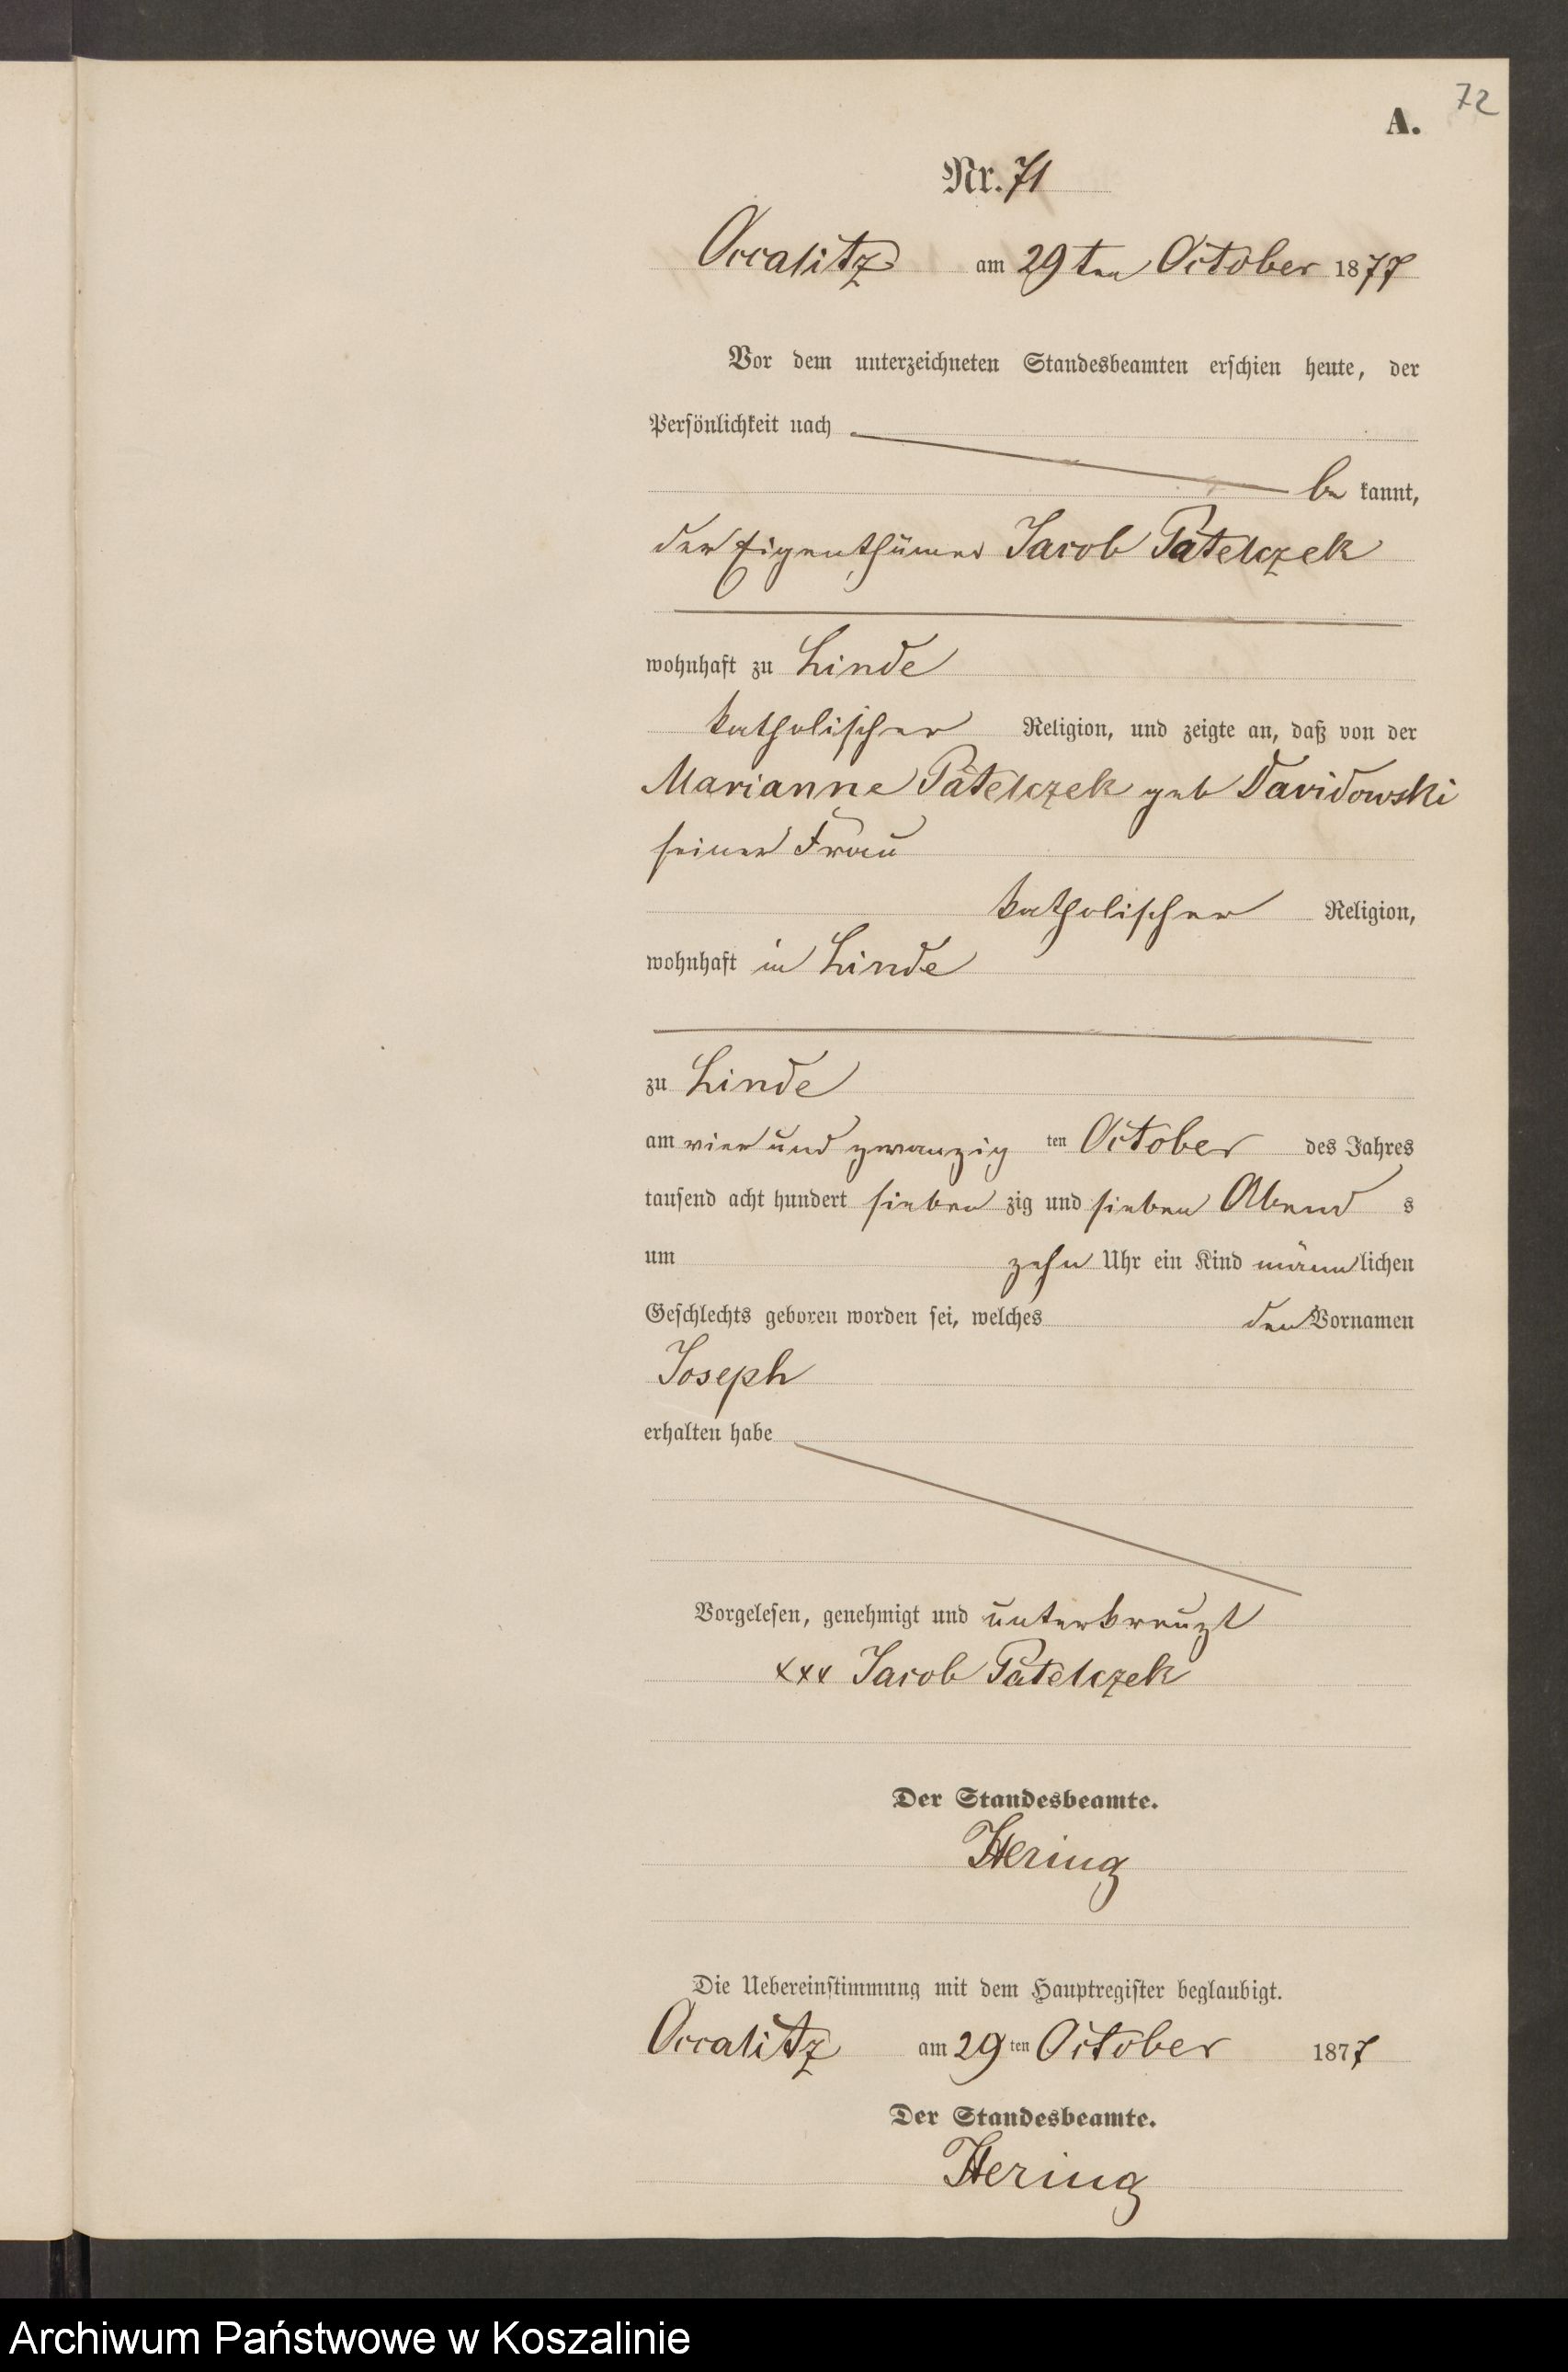 72
A.
Nr. 71
Occalitz am 29ten October 1877
Vor dem unterzeichneten Standesbeamten erschien heute, der
Persönlichkeit nach
be kannt,
der Eigenthümer Jacob Patelczek
wohnhaft zu Linde
katholischer Religion, und zeigte an, daß von der
Marianne Patelczek geb Davidowski
seiner Frau
katholischer Religion,
wohnhaft in Linde
zu Linde
am vier und zwanzig ten October des Jahres
tausend acht hundert sieben zig und sieben Abend s
um zehn Uhr ein Kind männ lichen
Geschlechts geboren worden sei, welches den Vornamen
Joseph
erhalten habe
Vorgelesen, genehmigt und unterkreuzt
xxx Jacob Patelczek
Der Standesbeamte.
Hering
Die Uebereinstimmung mit dem Hauptregister beglaubigt.
Occalitz am 29 ten October 1877
Der Standesbeamte.
Hering
Archiwum Państwowe w Koszalinie